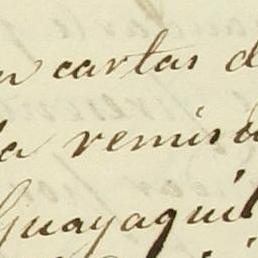 cartas d
la remis
Guayaquil